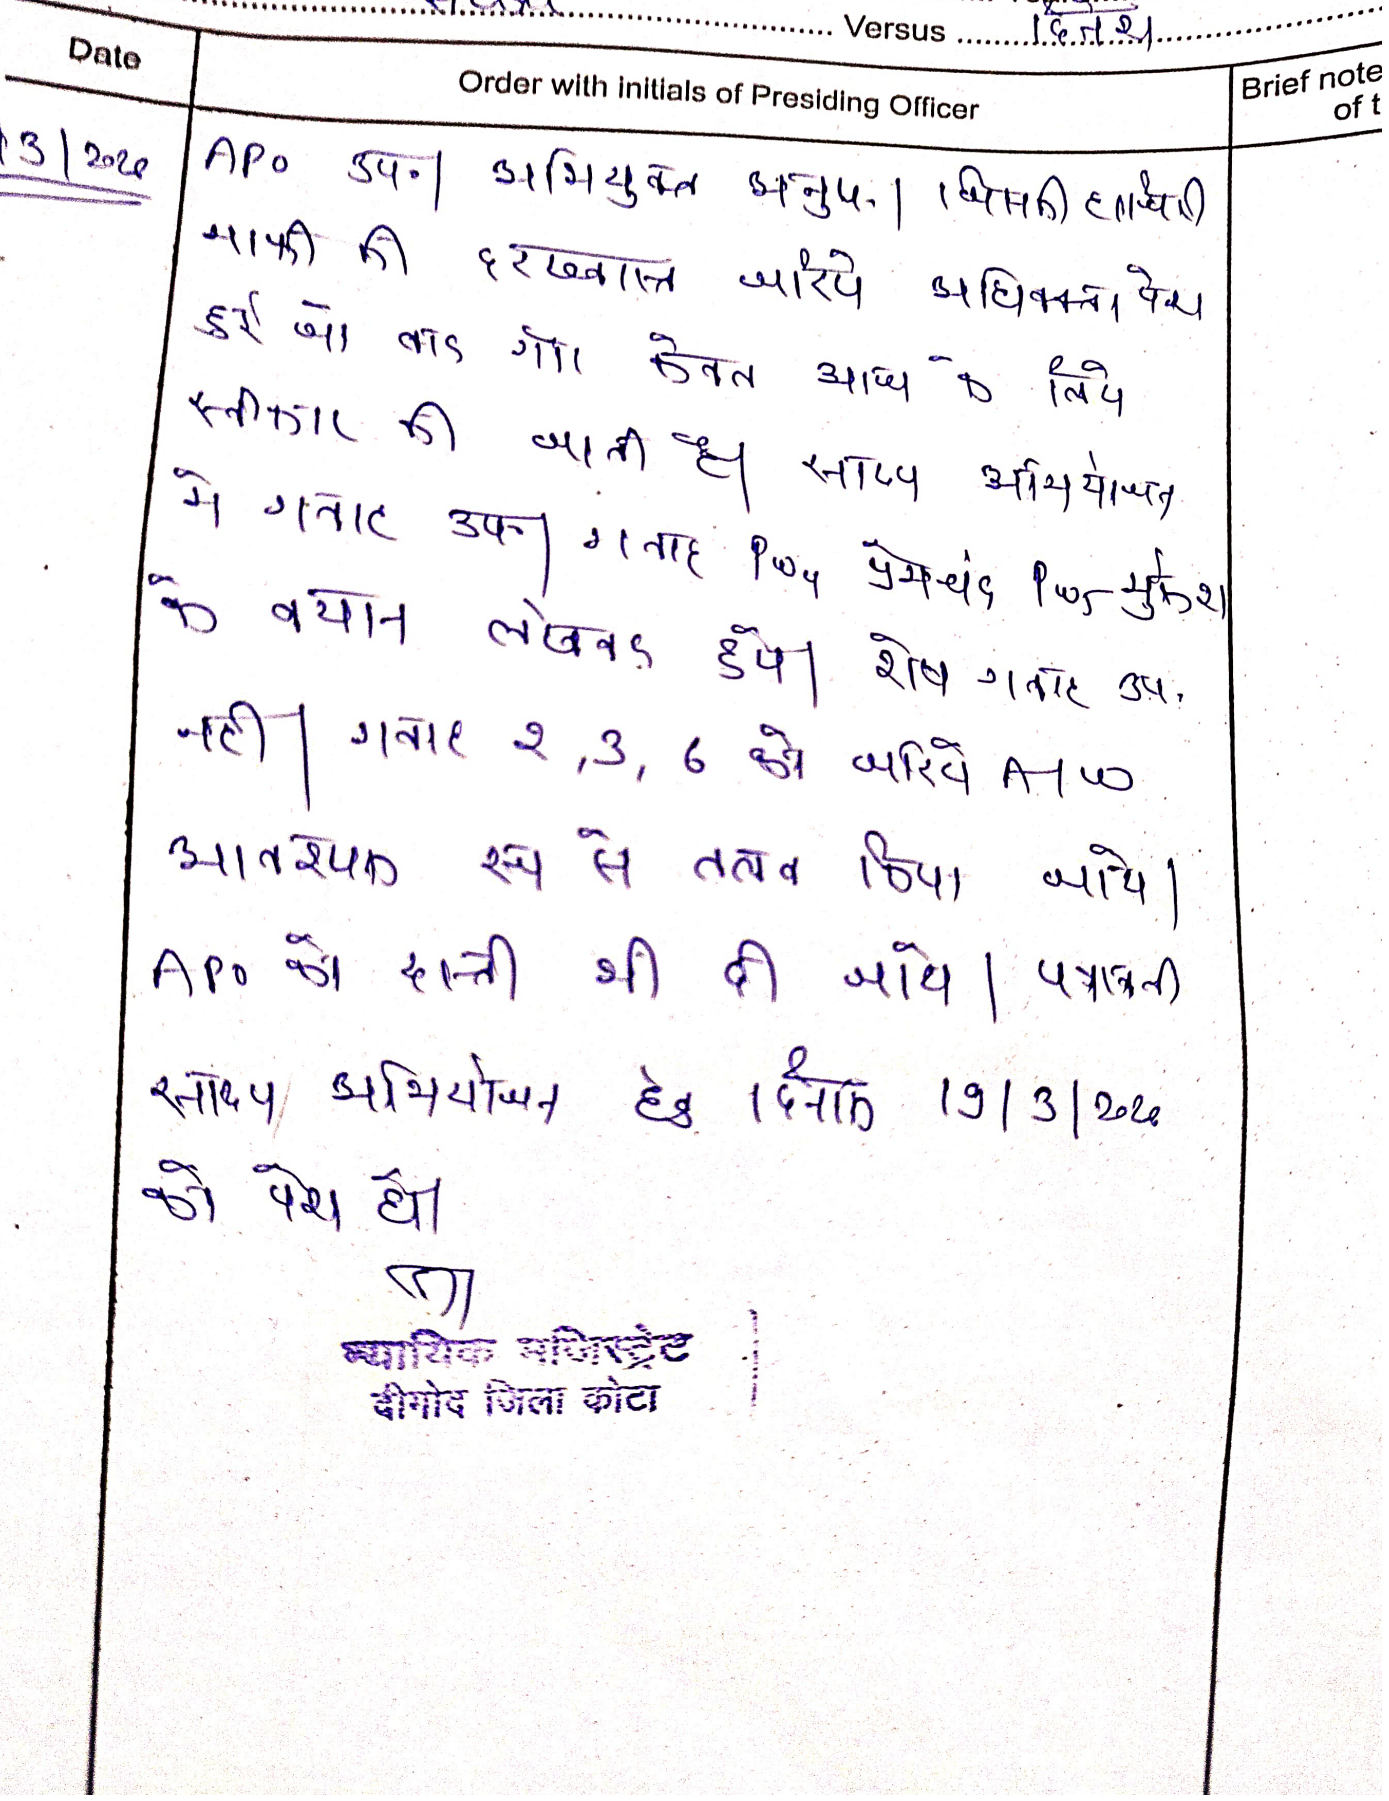 Versus दिनेश
Date
Order with initials of Presiding Officer
Brief note
of t
3/202
APO उप०। अभियुक्त अनुप.। जिसकी हाजिरी
माफी की दरख्वास्त जरिये अधिवक्ता पेश
हुई जो बाद गौर केवल आज के लिये
स्वीकार की जाती है। साक्ष्य अभियोजन
मे गवाह उप०। गवाह PW4 प्रेमचंद PW5 मुकेश
के बयान लेखबद्ध हुये। शेष गवाह उप.
नही। गवाह 2, 3, 6 को जरिये AW
आवश्यक रूप से तलब किया जाये।
APO को दस्ती भी दी जाये। पत्रावली
साक्ष्य अभियोजन हेतु दिनांक 19/3/202
को पेश हो।
न्यायिक मजिस्ट्रेट
दीगोद जिला कोटा